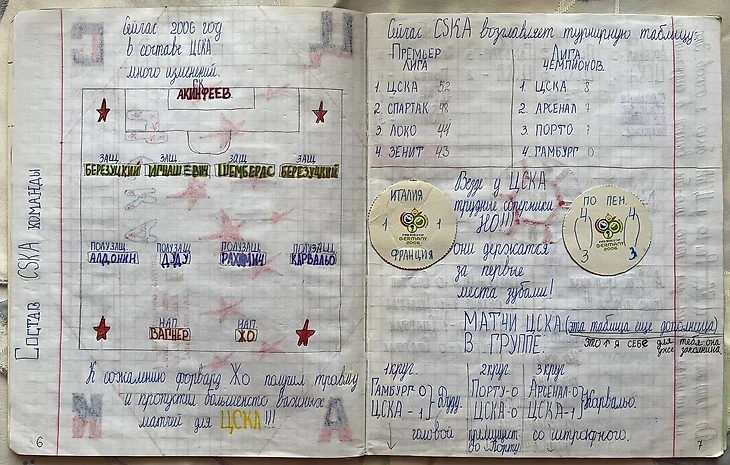 Сейчас 2006 год
в составе ЦСКА
много изменений.
ГК
АКИНФЕЕВ
ЗАЩ. ЗАЩ. ЗАЩ. ЗАЩ.
БЕРЕЗУЦКИЙ ИГНАШЕВИЧ ШЕМБЕРАС БЕРЕЗУЦКИЙ
ПОЛУЗАЩ. ПОЛУЗАЩ. ПОЛУЗАЩ. ПОЛУЗАЩ.
АЛДОНИН ДУДУ РАХИМИЧ КАРВАЛЬО
НАП. НАП.
ВАГНЕР ЖО
Состав CSKA команды
К сожалению форвард Жо получил травму
и пропустил большенсто важных
матчей для ЦСКА!!!
6
Сейчас CSKA возглавляет турнирную таблицу
ПРЕМЬЕР ЛИГА
1 ЦСКА 52
2 СПАРТАК
3 ЛОКО 44
4 ЗЕНИТ 43
ЛИГА ЧЕМПИОНОВ
1 ЦСКА
2 АРСЕНАЛ
3 ПОРТО
4 ГАМБУРГ 0
Везде у ЦСКА
трудные соперники
НО!!!
они держатся
за первые
места зубами!
ИТАЛИЯ
1 1
GERMANY
2006
ФРАНЦИЯ
ПО ПЕН.
4 4
GERMANY
2006
3 3
МАТЧИ ЦСКА (эта таблица еще дополница)
В ГРУППЕ.
это я себе для тебя она уже заполнина
1 круг.
ГАМБУРГ-0
ЦСКА-1
Дуду.
головой
2 круг
ПОРТУ-0
ЦСКА-0
3 круг
АРСЕНАЛ-0
ЦСКА-1
Карвальо.
со штрафного.
7